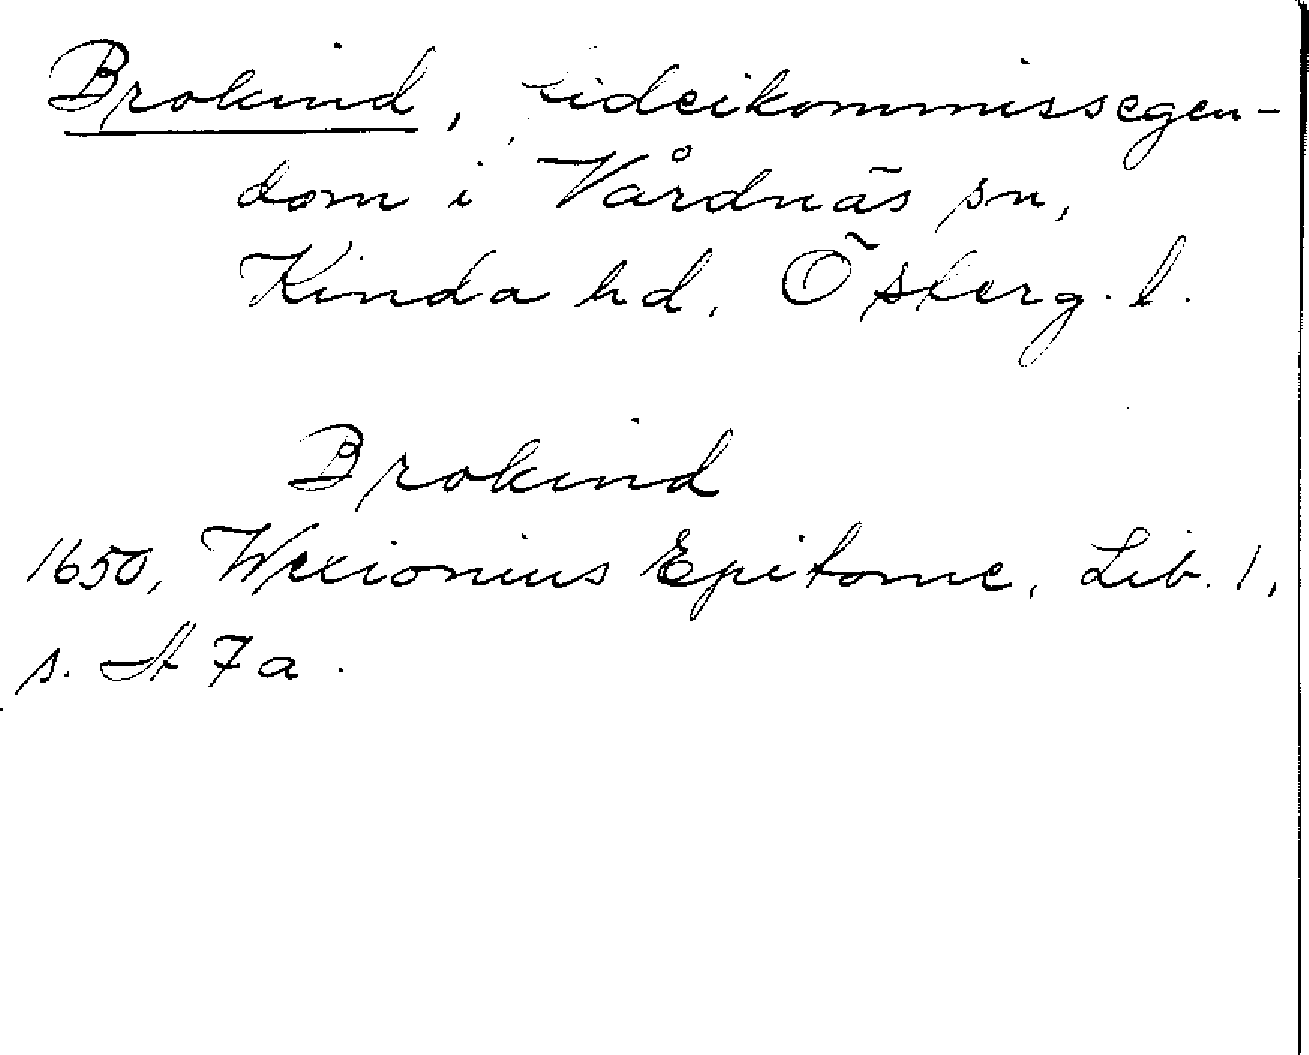 Brokind, fideikommissegen-
dom i Vårdnäs sn,
Kinda hd, Österg. l.
Brokind
1650, Wexionius Epitome, Lib. 1,
s. A 7 a.